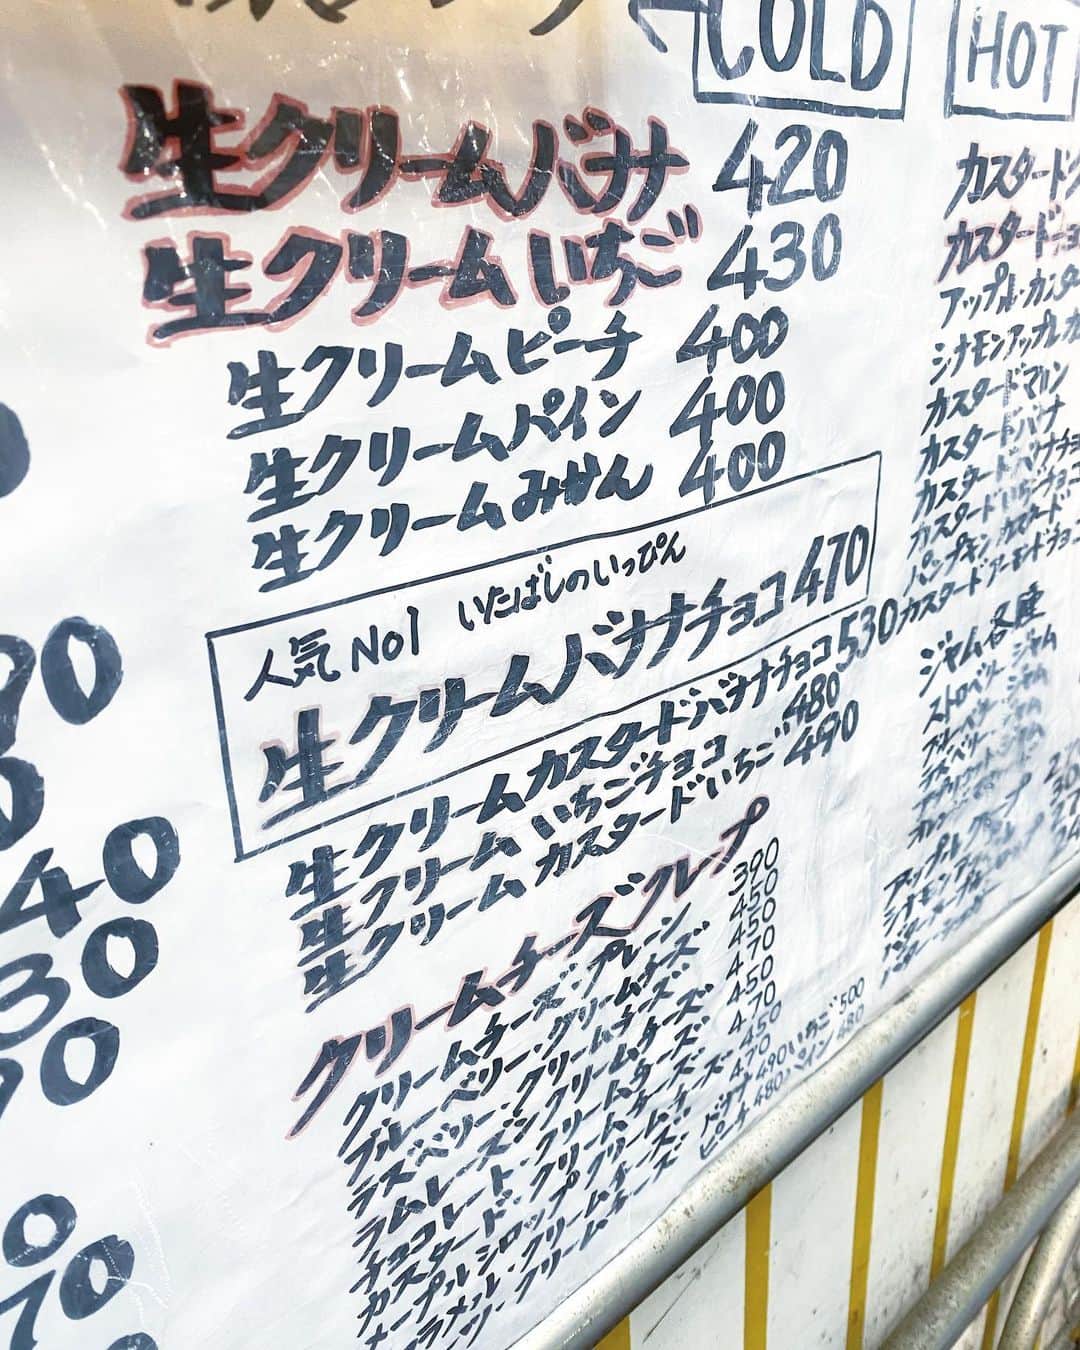 COLD
生クリームバナナ 420
生クリームいちご 430
生クリームピーチ 400
生クリームパイン 400
生クリームみかん 400
人気No1 いたばしのいっぴん
生クリームバナナチョコ 470
生クリームカスタードバナナチョコ 530
生クリームいちごチョコ 480
生クリームカスタードいちご 490
クリームチーズクレープ
クリームチーズ・プレーン 390
ブルーベリー・クリームチーズ 450
ラズベリー・クリームチーズ 450
ラムレーズンクリームチーズ 470
チョコレート・クリームチーズ 450
カスタード・クリームチーズ 470
メープルシロップクリームチーズ 450
ラメル・クリームチーズ 470
ツ・クリームチーズ
バナナ490 いちご500
ピーチ480 パイン480
HOT
カスタード
カスタードチョ
アップル・カスター
シナモンアップルカ
カスタードマロン
カスタードバナナ
カスタードバナナチョコ
カスタードいちごチョコ
パンプキンカスタード
カスタードアーモンドチョコ
ジャム各座
ストロベリージャム
ブルーベリージャム
90
0
40
30
0
70